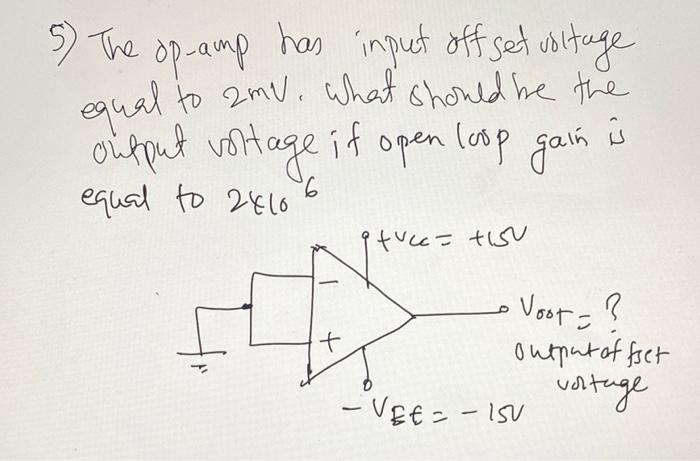 5) The op-amp has input offset voltage
equal to 2mV. What should be the
output voltage if open loop gain is
equal to 2×10⁶
+Vcc = +15V
−
+
Voot = ?
output offset
voltage
-VEE = -15V